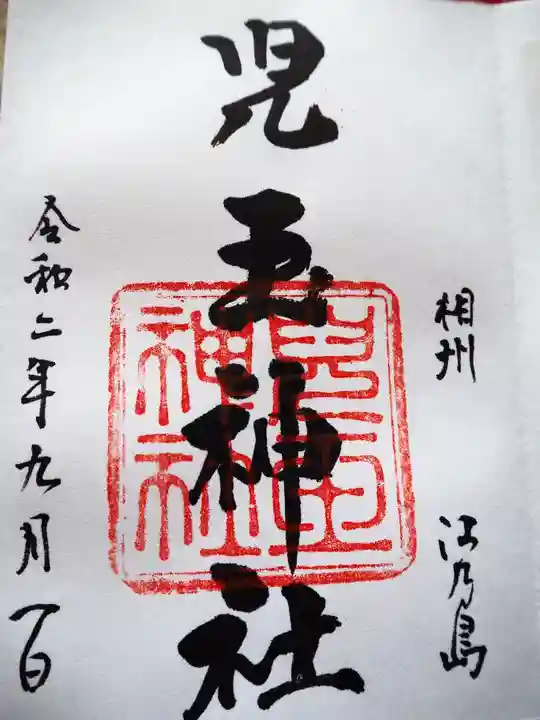 相州 江乃島
児玉神社
児玉神社
令和二年九月一日